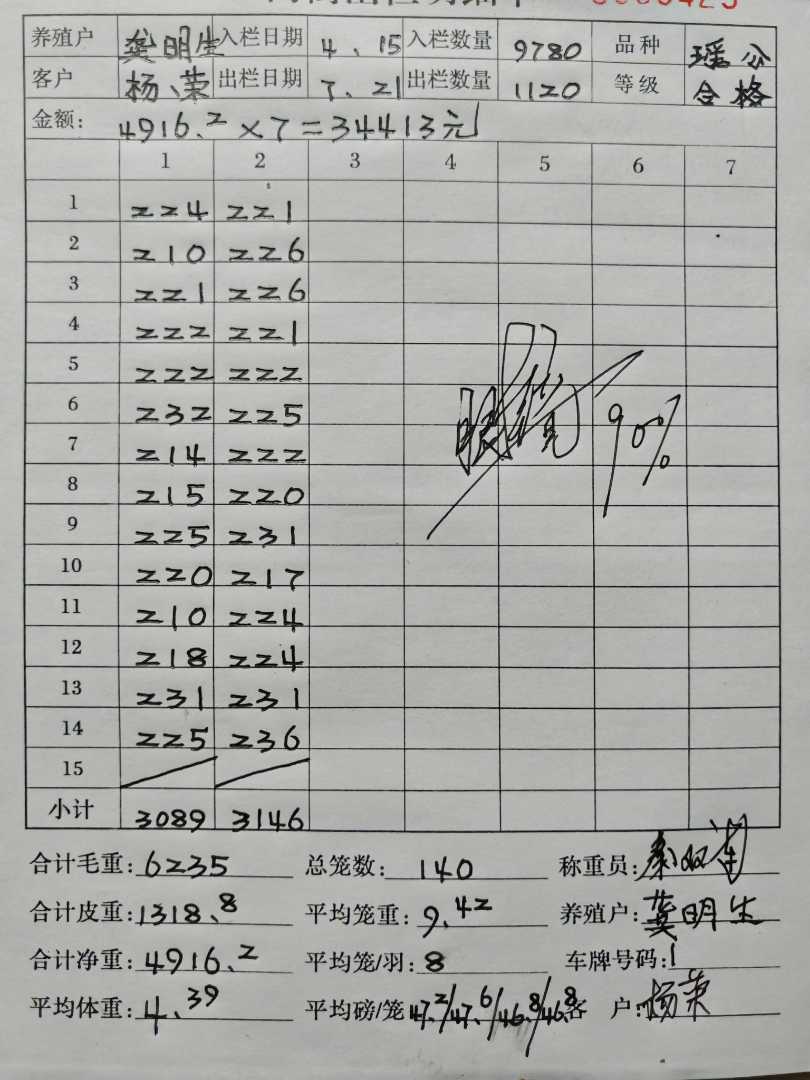 养殖户 龚明生 入栏日期 4.15 入栏数量 9780 品种 瑶公
客户 杨荣 出栏日期 7.21 出栏数量 1120 等级 合格
金额: 4916.2×7=34413元
1 2 3 4 5 6 7
1 224 221
2 210 226
3 221 226
4 222 221
5 222 222
6 232 225
7 214 222
8 215 220
9 225 231
10 220 217
11 210 224
12 218 224
13 231 231
14 225 236
15
小计 3089 3146
90%
合计毛重: 6235 总笼数: 140 称重员:
合计皮重: 1318.8 平均笼重: 9.42 养殖户: 龚明生
合计净重: 4916.2 平均笼/羽: 8 车牌号码: 1
平均体重: 4.39 平均磅/笼 47.2/47.6/46.8/46.8 客户: 杨荣